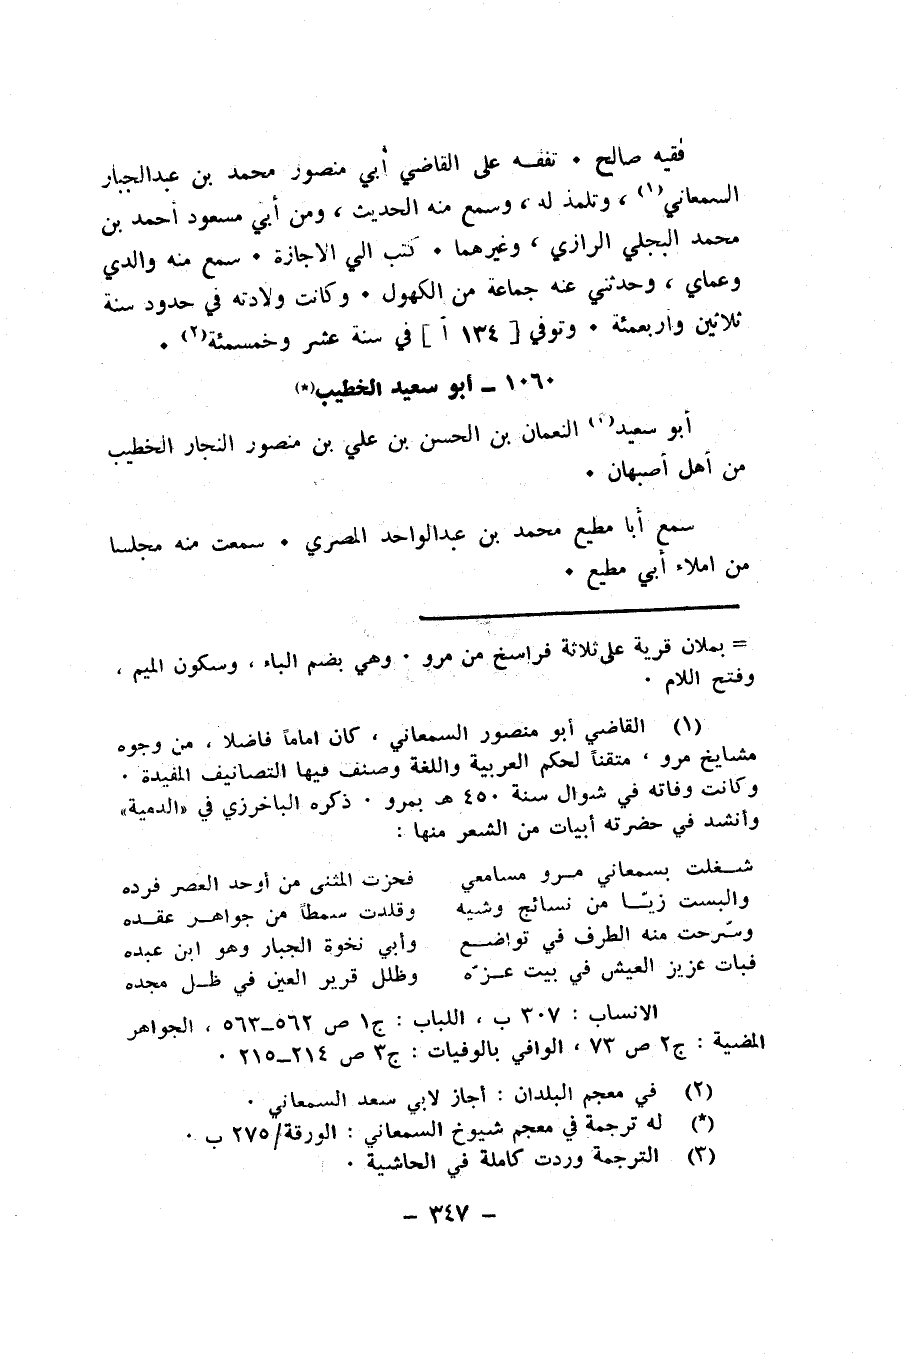 فقيه صالح • تفقه على القاضي أبي منصور محمد بن عبدالجبار
السمعاني(١) ، وتلمذ له ، وسمع منه الحديث ، ومن أبي مسعود أحمد بن
محمد البجلي الرازي ، وغيرهما • كتب الي الاجازة • سمع منه والدي
وعماي ، وحدثني عنه جماعة من الكهول • وكانت ولادته في حدود سنة
ثلاثين وأربعمئة • وتوفي [ ١٣٤ أ ] في سنة عشر وخمسمئة(٢) •
١٠٦٠ ــ أبو سعيد الخطيب(*)
أبو سعيد() النعمان بن الحسن بن علي بن منصور النجار الخطيب
من أهل أصبهان •
سمع أبا مطيع محمد بن عبدالواحد المصري • سمعت منه مجلسا
من املاء أبي مطيع •
= بملان قرية على ثلاثة فراسخ من مرو • وهي بضم الباء ، وسكون الميم ،
وفتح اللام •
(١) القاضي أبو منصور السمعاني ، كان اماماً فاضلا ، من وجوه
مشايخ مرو ، متقناً لحكم العربية واللغة وصنف فيها التصانيف المفيدة •
وكانت وفاته في شوال سنة ٤٥٠ هـ بمرو • ذكره الباخرزي في «الدمية»
وأنشد في حضرته أبيات من الشعر منها :
شــغلت بسمعاني مـرو مسامعي فحزت المثنى من أوحد العصر فرده
والبست زيـّـا من نسائج وشيه وقلدت سمطاً من جواهـر عقـده
وسّرحت منه الطرف في تواضـــع وأبي نخوة الجبار وهو ابن عبده
فبات عزيز العيش في بيت عـزّه وظلل قرير العين في ظـل مجده
الانساب : ٣٠٧ ب ، اللباب : ج١ ص ٥٦٢ــ٥٦٣ ، الجواهر
المضية : ج٢ ص ٧٣ ، الوافي بالوفيات : ج٣ ص ٢١٤ــ٢١٥ •
(٢) في معجم البلدان : أجاز لابي سعد السمعاني •
(*) له ترجمة في معجم شيوخ السمعاني : الورقة/٢٧٥ ب •
(٣) الترجمة وردت كاملة في الحاشية •
ــ ٣٤٧ ــ